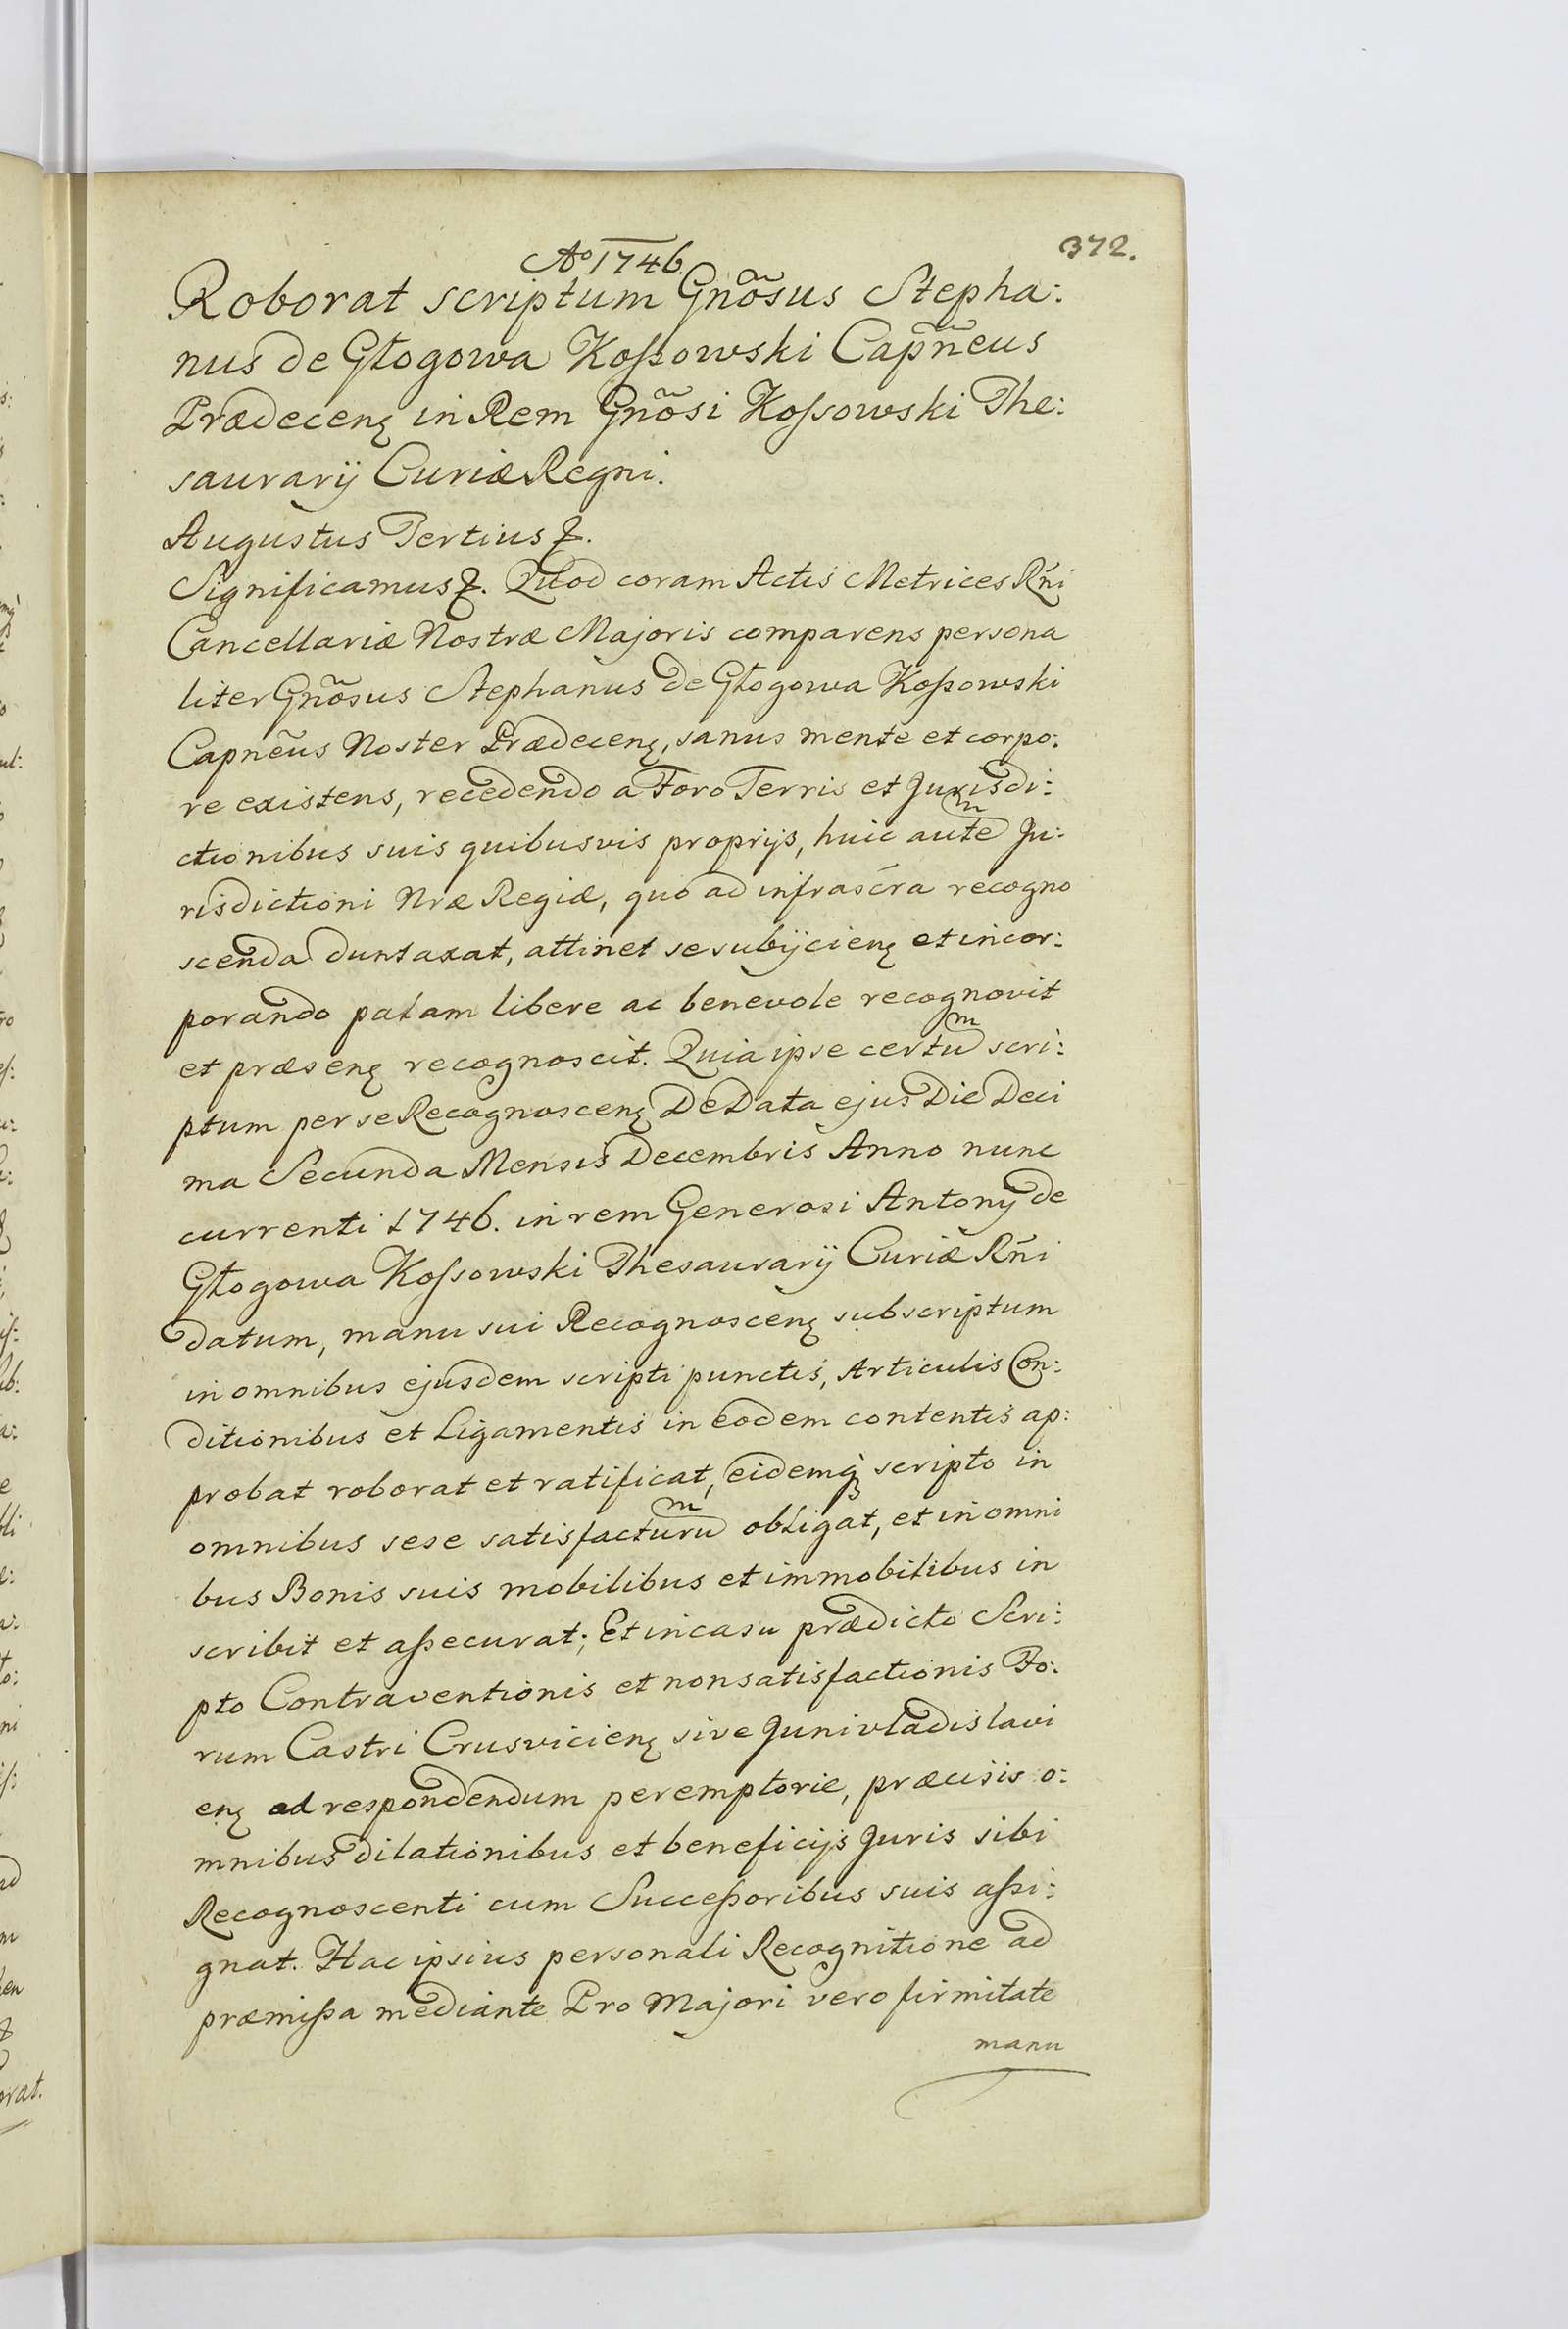 Ao 1746.
372.
Roborat scriptum Gnõsus Stepha:
nus de Głogowa Koſsowski Capñeus
Prædecenꝫ in Rem Gnõsi Koſsowski The:
saurarij Curiæ Regni.
Augustus Tertius &.
Significamus &. Quod coram Actis Metrices Rñi
Cancellariæ Nostræ Majoris comparens persona
liter Gnõsus Stephanus de Głogowa Koſsowski
Capnẽus Noster Prædecenꝫ, sanus mente et corpo:
re existens, recedendo a Foro Terris et Jurisdi:
ctionibus suis quibusvis proprijs, huic autẽ Ju:
risdictioni Nræ Regiæ, quo ad infrascra recogno
scenda duntaxat, attinet se subijcienꝫ et incor:
porando palam libere ac benevole recognovit
et præsenꝫ recognoscit. Quia ipse certuͫ scri:
ptum per se Recognoscenꝫ De Data ejus Die Deci
ma Secunda Mensis Decembris Anno nunc
currenti 1746. in rem Generosi Antonij de
Głogowa Koſsowski Thesaurarij Curiæ Rñi
datum, manu sui Recognoscenꝫ subscriptum
in omnibus ejusdem scripti punctis, Articulis Con:
ditionibus et Ligamentis in eodem contentis ap:
probat roborat et ratificat, eidemqꝫ scripto in
omnibus sese satisfacturuͫ obligat, et in omni
bus Bonis suis mobilibus et immobilibus in
scribit et aſsecurat; Et in casu prædicto Scri:
pto Contraventionis et non satisfactionis Fo:
rum Castri Crusvicienꝫ sive Junivladislavi
enꝫ ad respondendum peremptorie, præcisis o:
mnibus dilationibus et beneficijs Juris sibi
Recognoscenti cum Succeſsoribus suis aſsi:
gnat. Hac ipsius personali Recognitione ad
præmiſsa mediante Pro Majori vero firmitate
manu